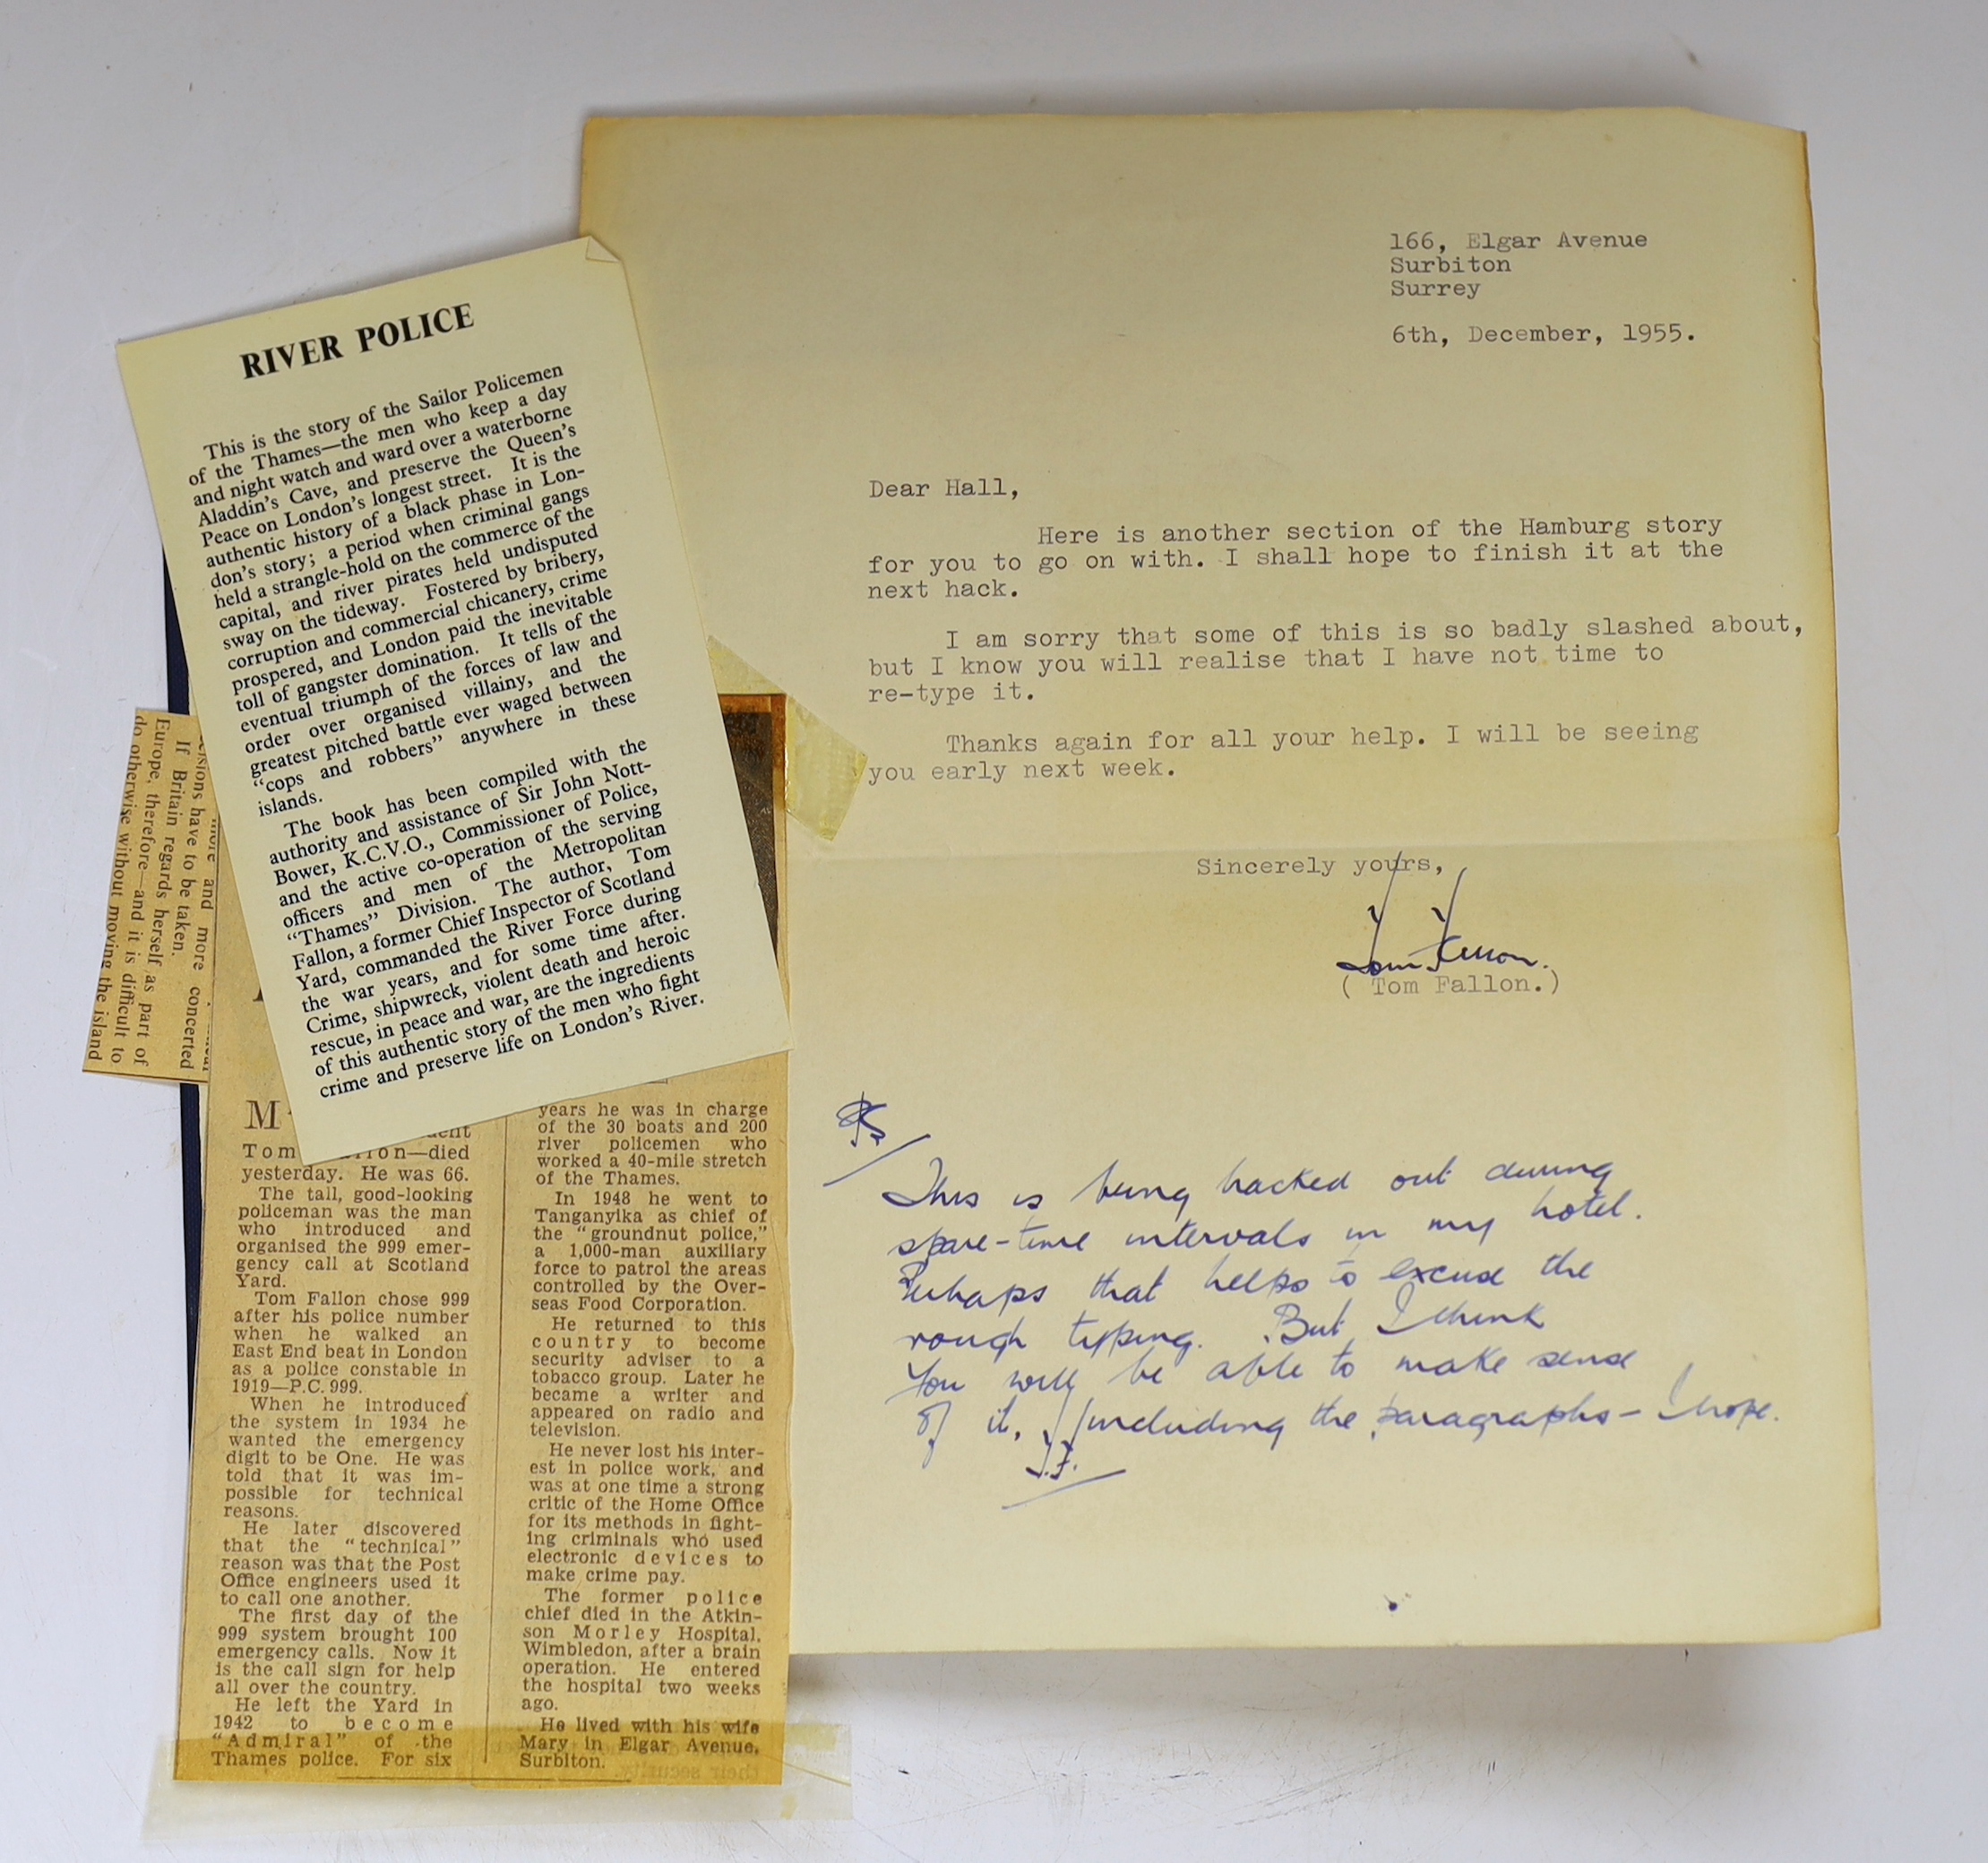 166, Elgar Avenue
Surbiton
Surrey
6th, December, 1955.
Dear Hall,
Here is another section of the Hamburg story
for you to go on with. I shall hope to finish it at the
next hack.
I am sorry that some of this is so badly slashed about,
but I know you will realise that I have not time to
re-type it.
Thanks again for all your help. I will be seeing
you early next week.
Sincerely yours,
Tom Fallon.
( Tom Fallon.)
PS
This is being hacked out during
spare-time intervals in my hotel.
Perhaps that helps to excuse the
rough typing. But I think
You will be able to make sense
of it, including the paragraphs - I hope.
T.F.
RIVER POLICE
This is the story of the Sailor Policemen
of the Thames—the men who keep a day
and night watch and ward over a waterborne
Aladdin's Cave, and preserve the Queen's
Peace on London's longest street. It is the
authentic history of a black phase in Lon-
don's story; a period when criminal gangs
held a strangle-hold on the commerce of the
capital, and river pirates held undisputed
sway on the tideway. Fostered by bribery,
corruption and commercial chicanery, crime
prospered, and London paid the inevitable
toll of gangster domination. It tells of the
eventual triumph of the forces of law and
order over organised villainy, and the
greatest pitched battle ever waged between
“cops and robbers” anywhere in these
islands.
The book has been compiled with the
authority and assistance of Sir John Nott-
Bower, K.C.V.O., Commissioner of Police,
and the active co-operation of the serving
officers and men of the Metropolitan
“Thames” Division. The author, Tom
Fallon, a former Chief Inspector of Scotland
Yard, commanded the River Force during
the war years, and for some time after.
Crime, shipwreck, violent death and heroic
rescue, in peace and war, are the ingredients
of this authentic story of the men who fight
crime and preserve life on London's River.
more and more concerted
have to be taken.
If Britain regards herself as part of
Europe, therefore—and it is difficult to
do otherwise without moving the island
M
Tom —died
yesterday. He was 66.
The tall, good-looking
policeman was the man
who introduced and
organised the 999 emer-
gency call at Scotland
Yard.
Tom Fallon chose 999
after his police number
when he walked an
East End beat in London
as a police constable in
1919—P.C. 999.
When he introduced
the system in 1934 he
wanted the emergency
digit to be One. He was
told that it was im-
possible for technical
reasons.
He later discovered
that the “technical”
reason was that the Post
Office engineers used it
to call one another.
The first day of the
999 system brought 100
emergency calls. Now it
is the call sign for help
all over the country.
He left the Yard in
1942 to become
“Admiral” of the
Thames police. For six
years he was in charge
of the 30 boats and 200
river policemen who
worked a 40-mile stretch
of the Thames.
In 1948 he went to
Tanganyika as chief of
the “groundnut police,”
a 1,000-man auxiliary
force to patrol the areas
controlled by the Over-
seas Food Corporation.
He returned to this
country to become
security adviser to a
tobacco group. Later he
became a writer and
appeared on radio and
television.
He never lost his inter-
est in police work, and
was at one time a strong
critic of the Home Office
for its methods in fight-
ing criminals who used
electronic devices to
make crime pay.
The former police
chief died in the Atkin-
son Morley Hospital,
Wimbledon, after a brain
operation. He entered
the hospital two weeks
ago.
He lived with his wife
Mary in Elgar Avenue,
Surbiton.